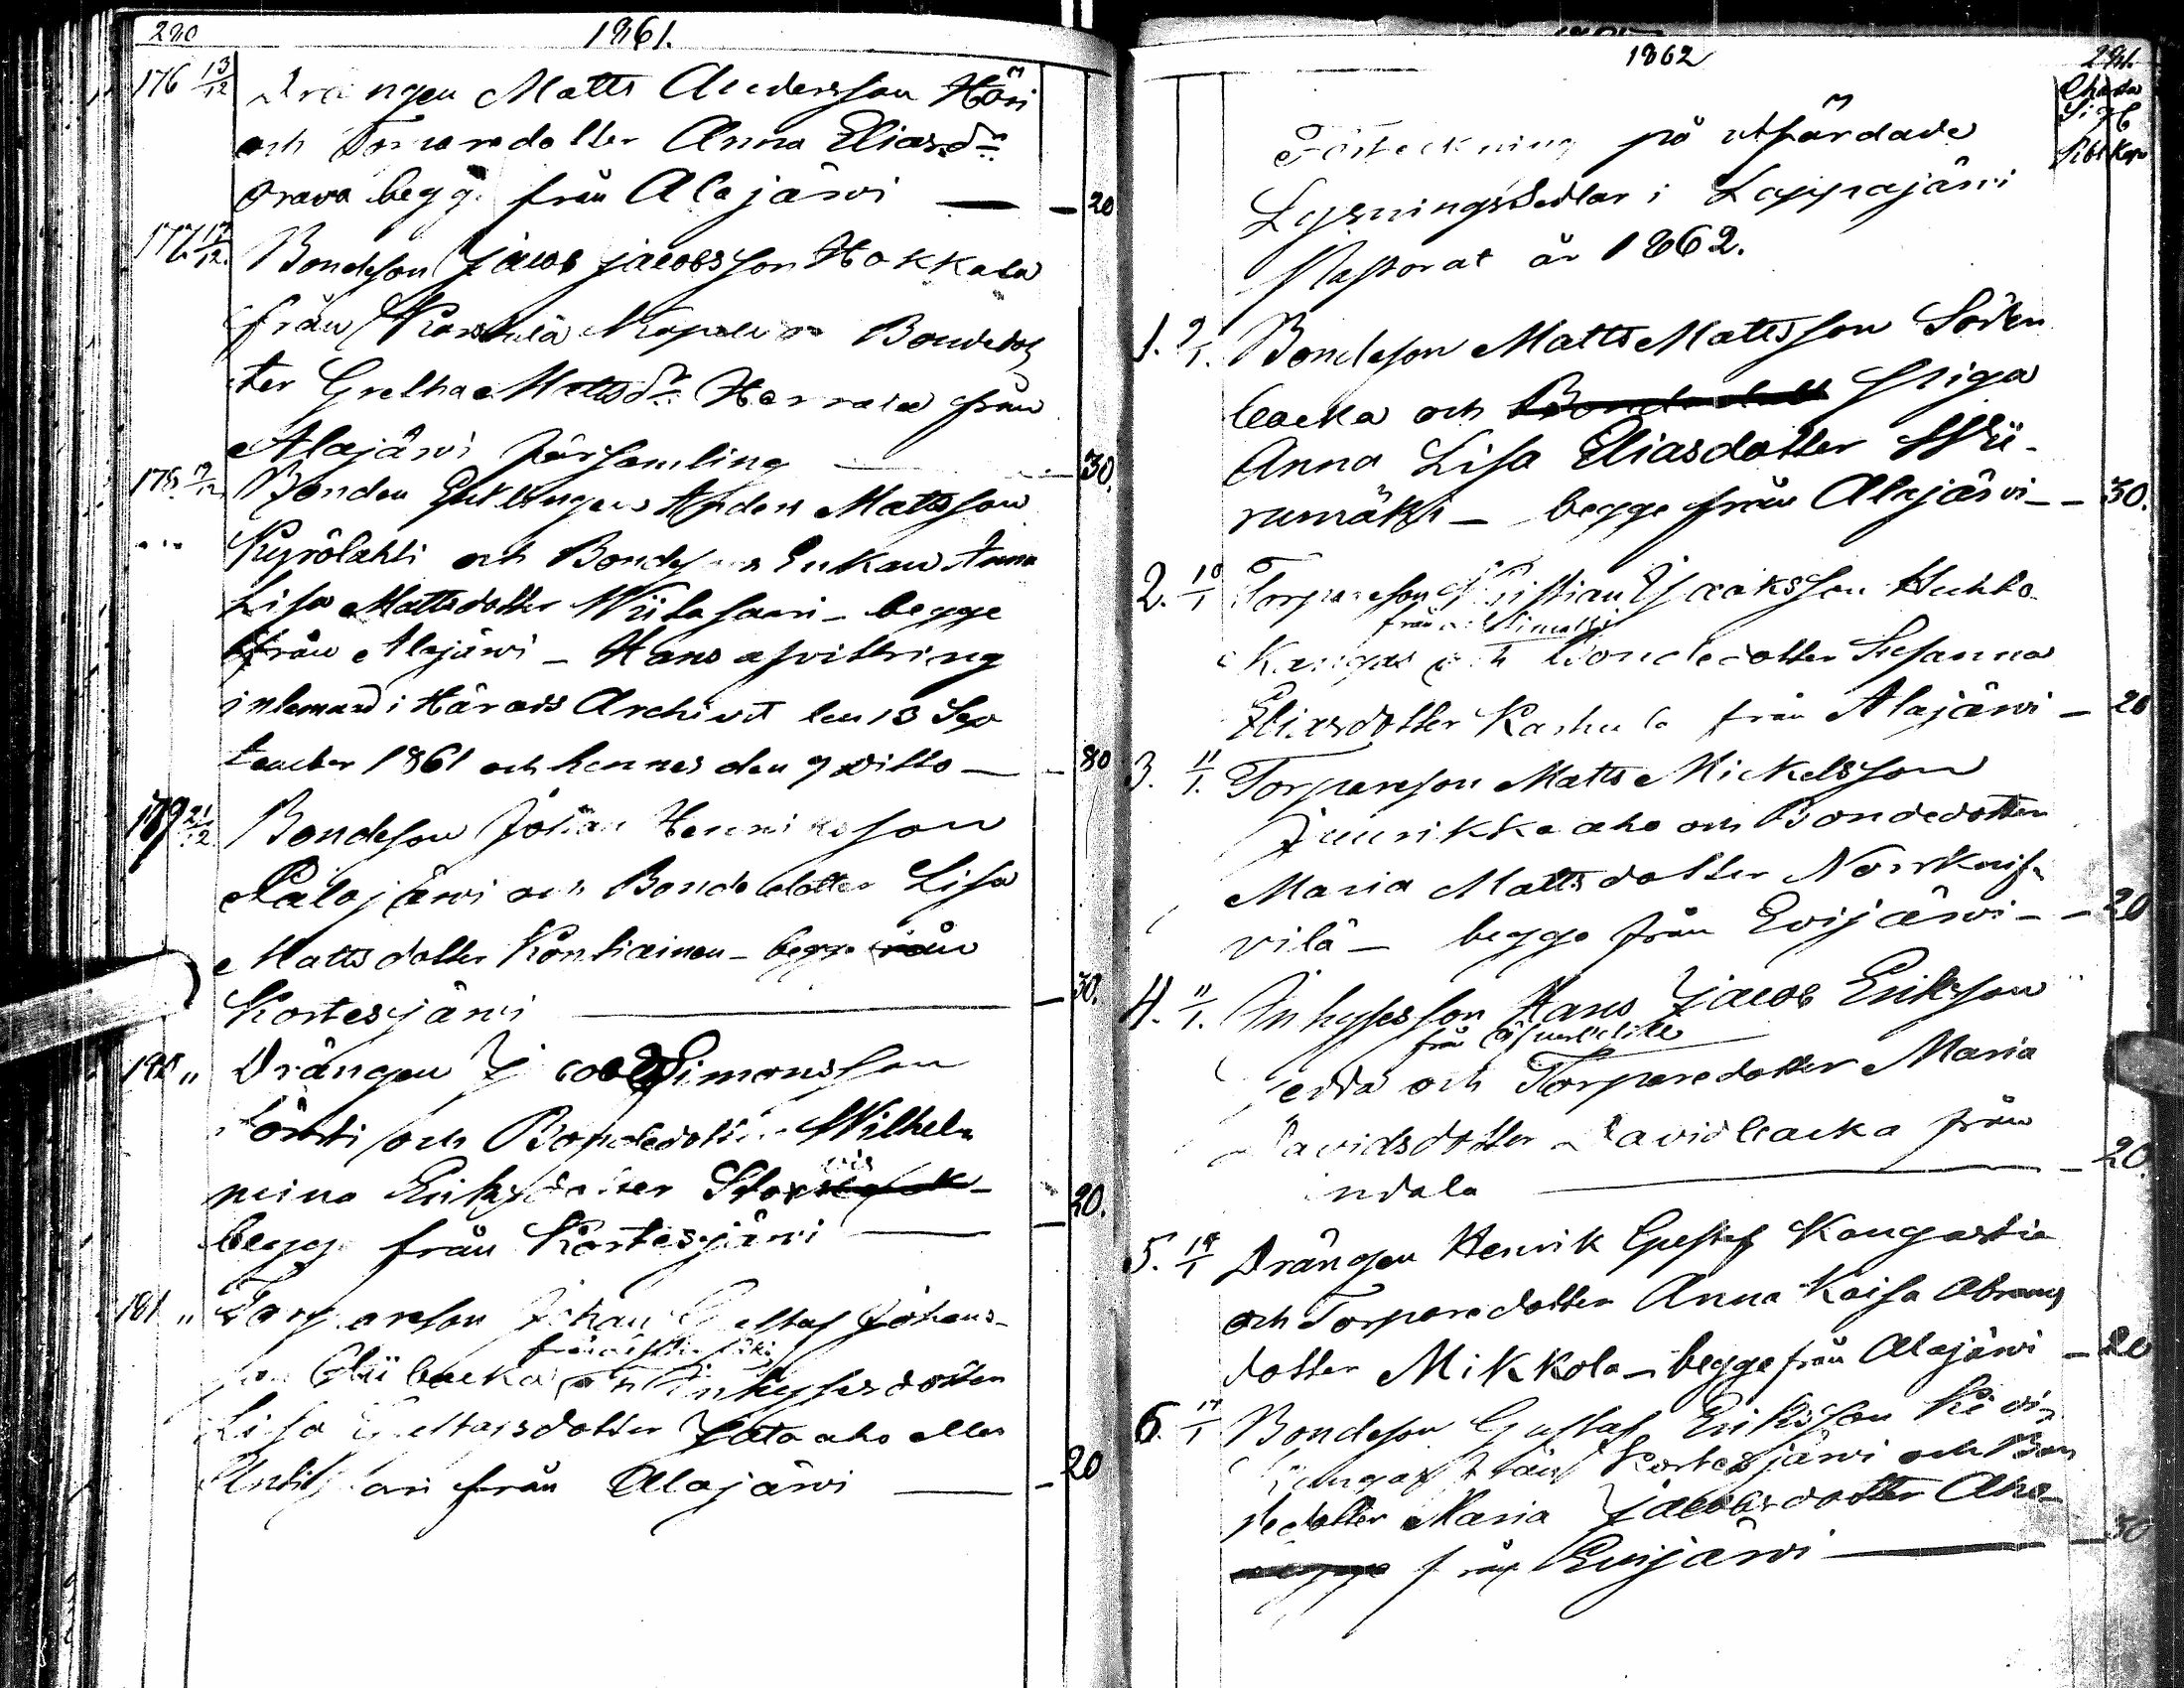 290
1861.
176 13/12 Drängen Matts Andersson Höri
och Torparedotter Anna Eliasdr
Orava begge från Alajärvi — — 20
177. 17/12. Bondeson Jacob Jacobsson Hokkala
från Kapell och Bondedot
ter Gretha Mattsdr. Harrala från
Alajärvi församling — 30.
178. 19/12 Bonden Enklingen Anders Mattsson
Kyrölahti och Bondesons Enkan Anna
Lisa Mattsdotter Wiitasaari – begge
från Alajärvi – Hans afvittring
inlemnad i Härads Archivet den 13 Sep
tember 1861 och hennes den 9 ditto — — 80
179 21/12. Bondeson Johan Henriksson
Palojärvi och Bondedotter Lisa
Mattsdotter Kontiainen – begge från
Kortesjärvi — 30.
180 " Drängen Jacob Simonsson
och Bondedotter Wilhel
mina Eriksdotter
begge från Kortesjärvi — 20.
181 " Torpareson Johan Gustaf Johans-
från
son backa och Inhysesdotter
Lisa Gustafsdotter Jataaho eller
från Alajärvi — — 20
1862
291.
Charta
Sigl
Förteckning på utfärdade
Lysningssedlar i Lappajärvi
Pastorat år 1862.
1. 9/1. Bondeson Matts Mattsson Söder
backa och Bondedott Piga
Anna Lisa Eliasdotter Wii-
rumäki – begge från Alajärvi – – 30.
2. 10/1 Torpareson Christian Isaaksson Huhta
från
Kangas och Bondedotter Susanna
Eliasdotter Kashula från Alajärvi – 20
3. 11/1. Torpareson Matts Mickelsson
Juurikkaaho och Bondedotter
Maria Mattsdotter Norrkaif
vilä – begge från Evijärvi – – 20
4. 11/1. Inhysesson Hans Jacob Eriksson
från
och Torparedotter Maria
Davidsdotter Davidbacka från
— 20.
5. 14/1 Drängen Henrik Gustaf Kangastie
och Torparedotter Anna Kaisa Abrams
dotter Mikkola – begge från Alajärvi – 20
6. 17/1 Bondeson Gustaf Eriksson Kivi-
kangas från Kortesjärvi och Bon
dedotter Maria Jacobsdotter Aho-
begge från Evijärvi — — 30